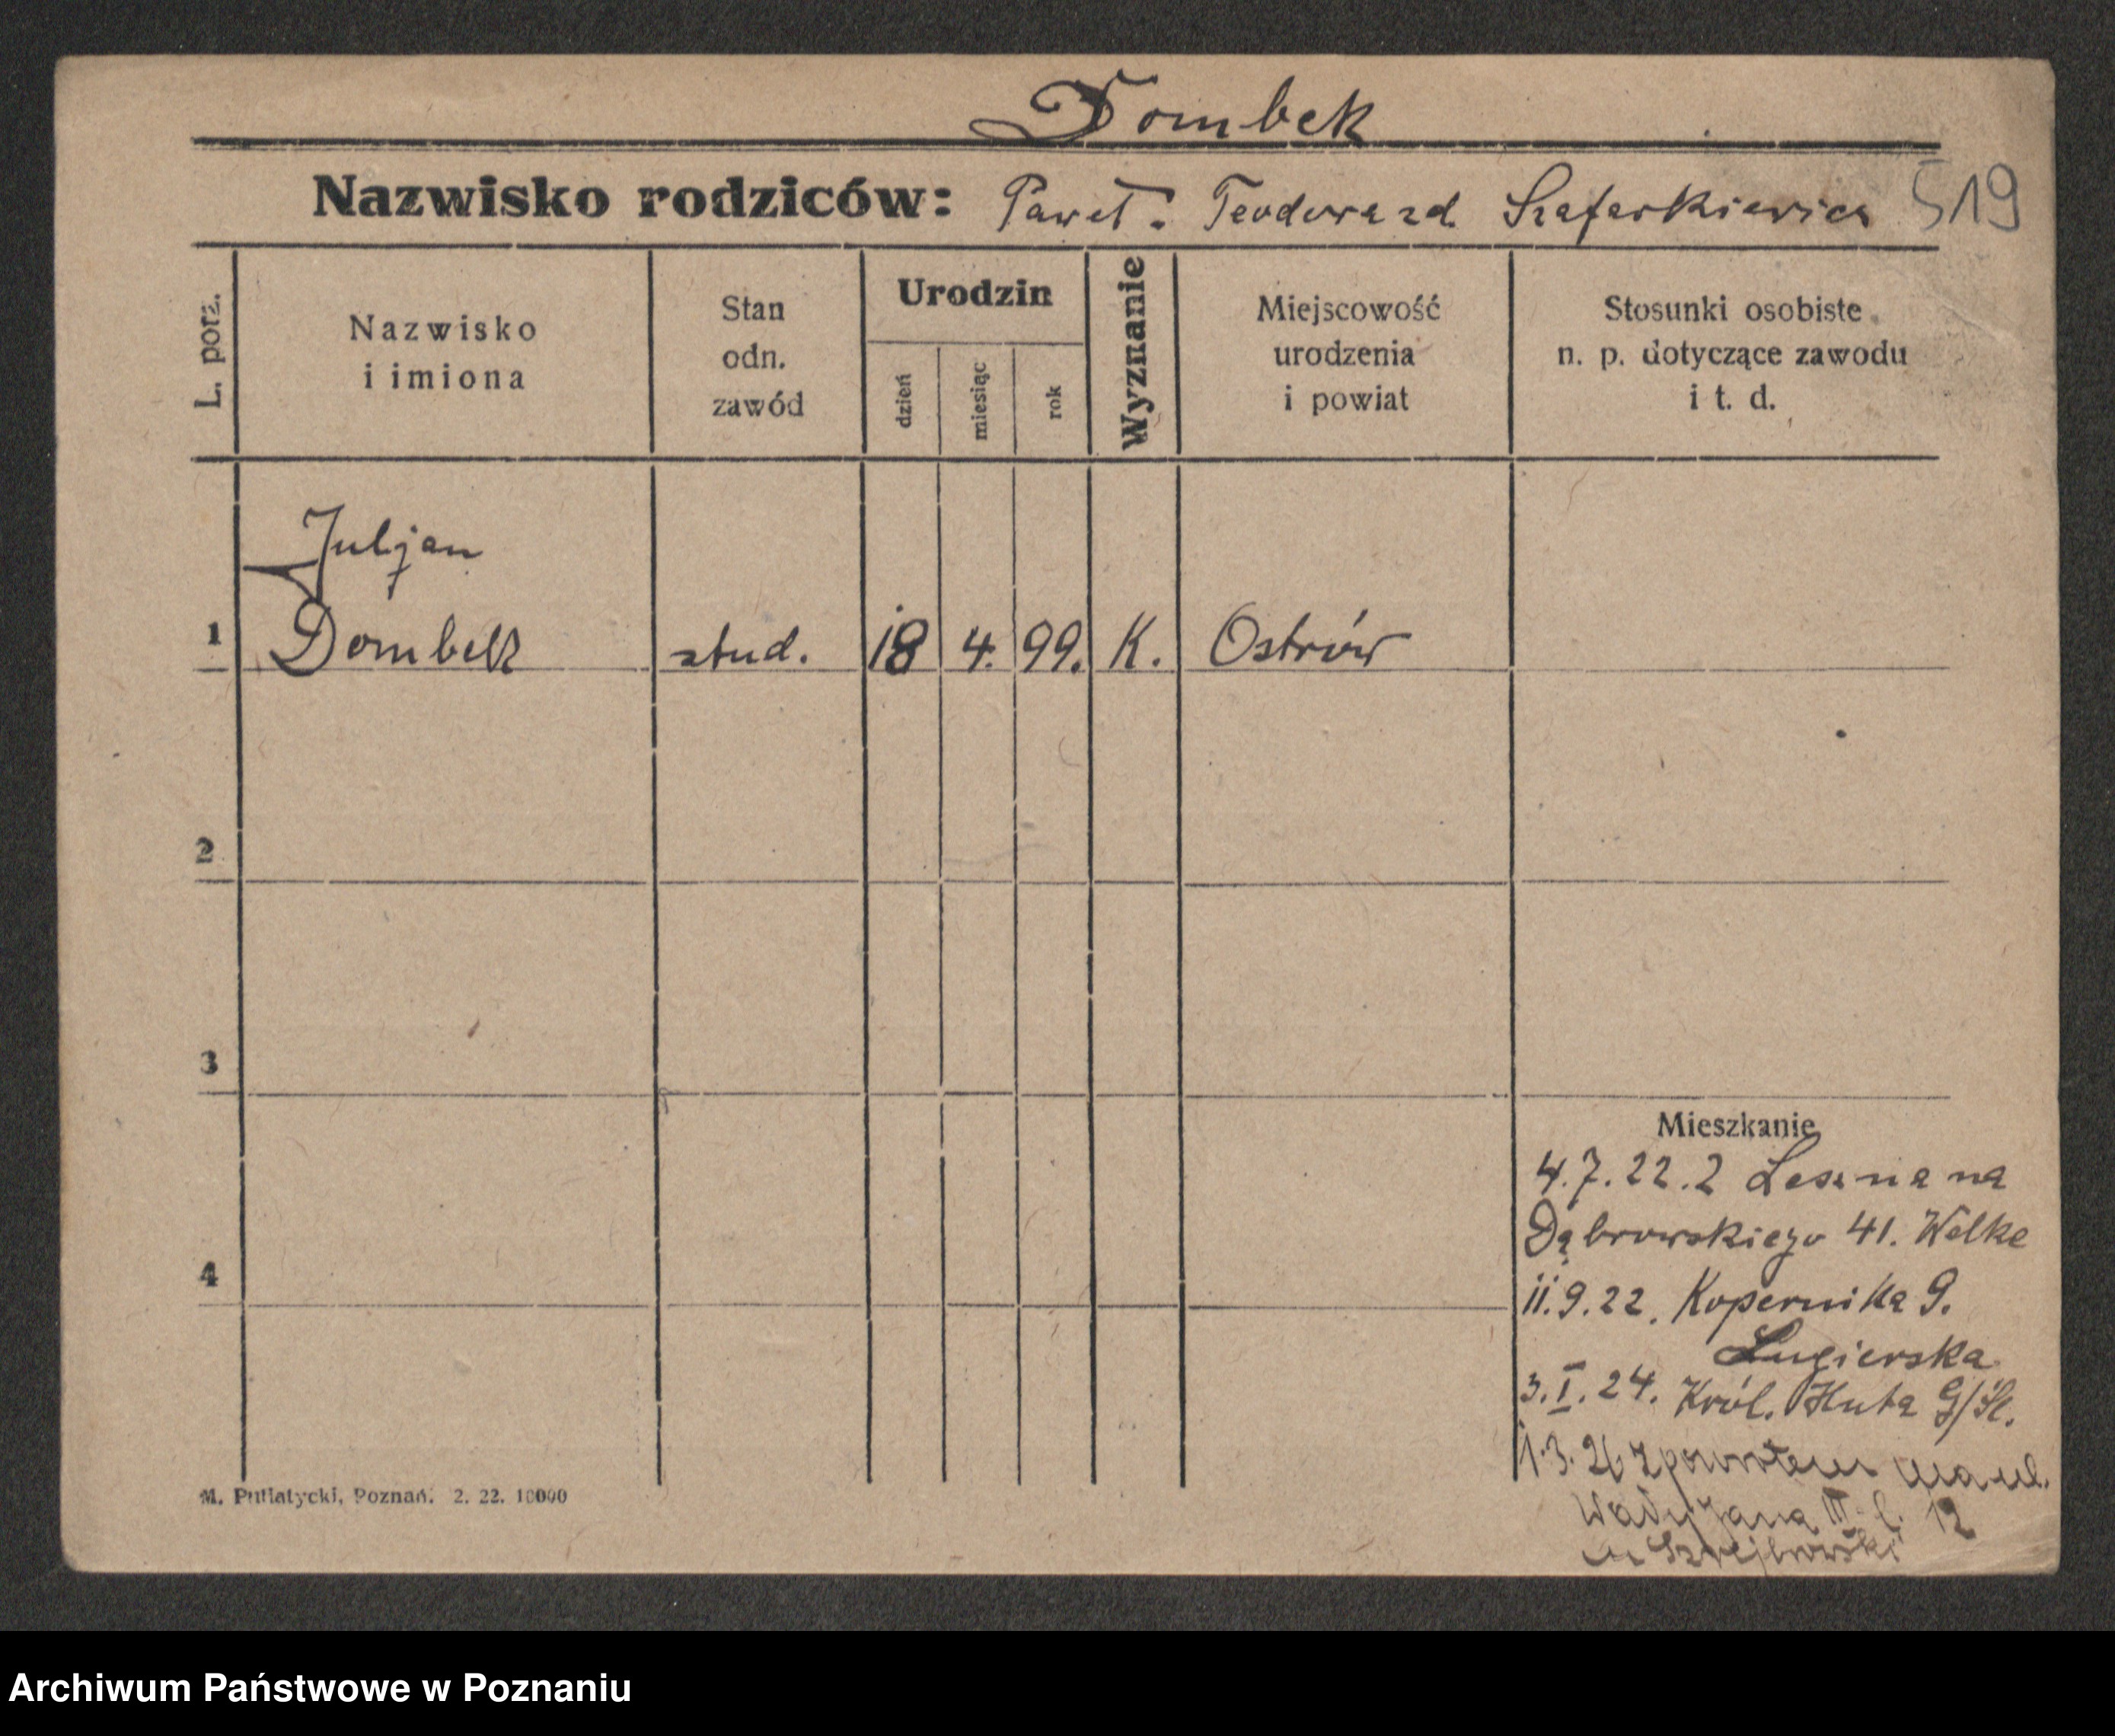 Dombek
Nazwisko rodziców: Paweł. Teodora zd Szafarkiewicz 519
L. porz.
Nazwisko
i imiona
Stan
odn.
zawód
Urodzin
dzień
miesiąc
rok
Wyznanie
Miejscowość
urodzenia
i powiat
Stosunki osobiste
n. p. dotyczące zawodu
i t. d.
Juljan
1 Dombek stud. 18 4. 99. K. Ostrów
2
3
4
Mieszkanie
4.7.22. z Leszna na
Dąbrowskiego 41. Welke
11.9.22. Kopernika 9.
Lugierska
3.I.24. Król. Huta G/Śl.
1.3.26 z powrotem na ul.
Wały Jana III l. 12
M. Putiatycki, Poznań. 2. 22. 10000
Archiwum Państwowe w Poznaniu